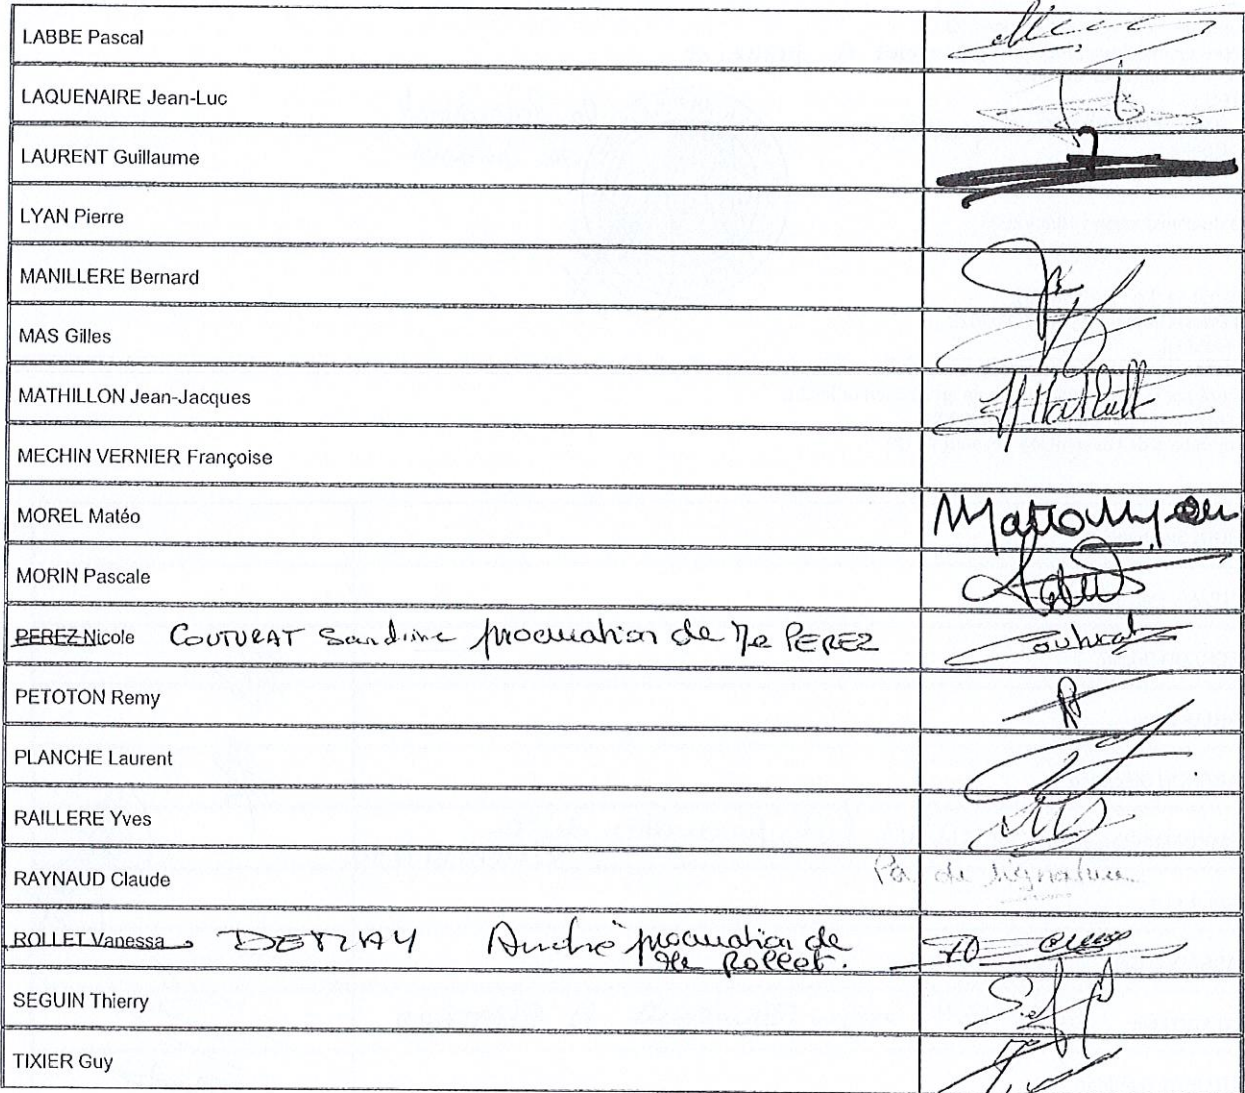 LABBE Pascal
LAQUENAIRE Jean-Luc
LAURENT Guillaume
LYAN Pierre
MANILLERE Bernard
MAS Gilles
MATHILLON Jean-Jacques
MECHIN VERNIER Françoise
MOREL Matéo
MORIN Pascale
PEREZ Nicole COUTURAT Sandrine procuration de Me PEREZ Couturat
PETOTON Remy
PLANCHE Laurent
RAILLERE Yves
RAYNAUD Claude Pas de signature
ROLLET Vanessa André procuration de
Me Rollet.
SEGUIN Thierry
TIXIER Guy